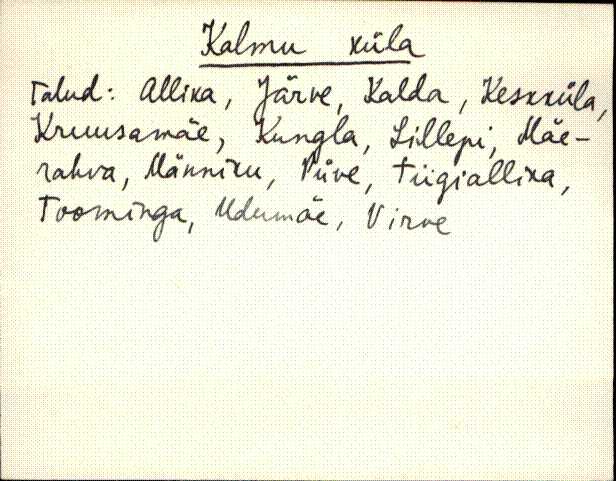 Kalmu küla
Talud: Allika, Järve, Kalda, Keskküla,
Kruusamäe, Kungla, Lillepi, Mäe-
rahva, Männiku, Püve, Tiigiallika,
Toominga, Udumäe, Virve